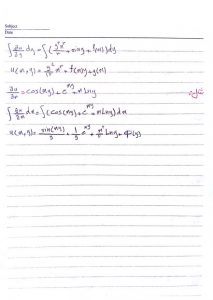 Subject
Date
∫ ∂u/∂y dy = ∫ ( + sin y + f(x)) dy
u(x,y) = + f(x)y + g(x)
∂u/∂x = cos(xy) + e^xy + x Ln y
∫ ∂u/∂x dx = ∫ (cos(xy) + e^xy + x Ln y) dx
u(x,y) = sin(xy)/y + 1/y e^xy + x²/2 Ln y + φ(y)